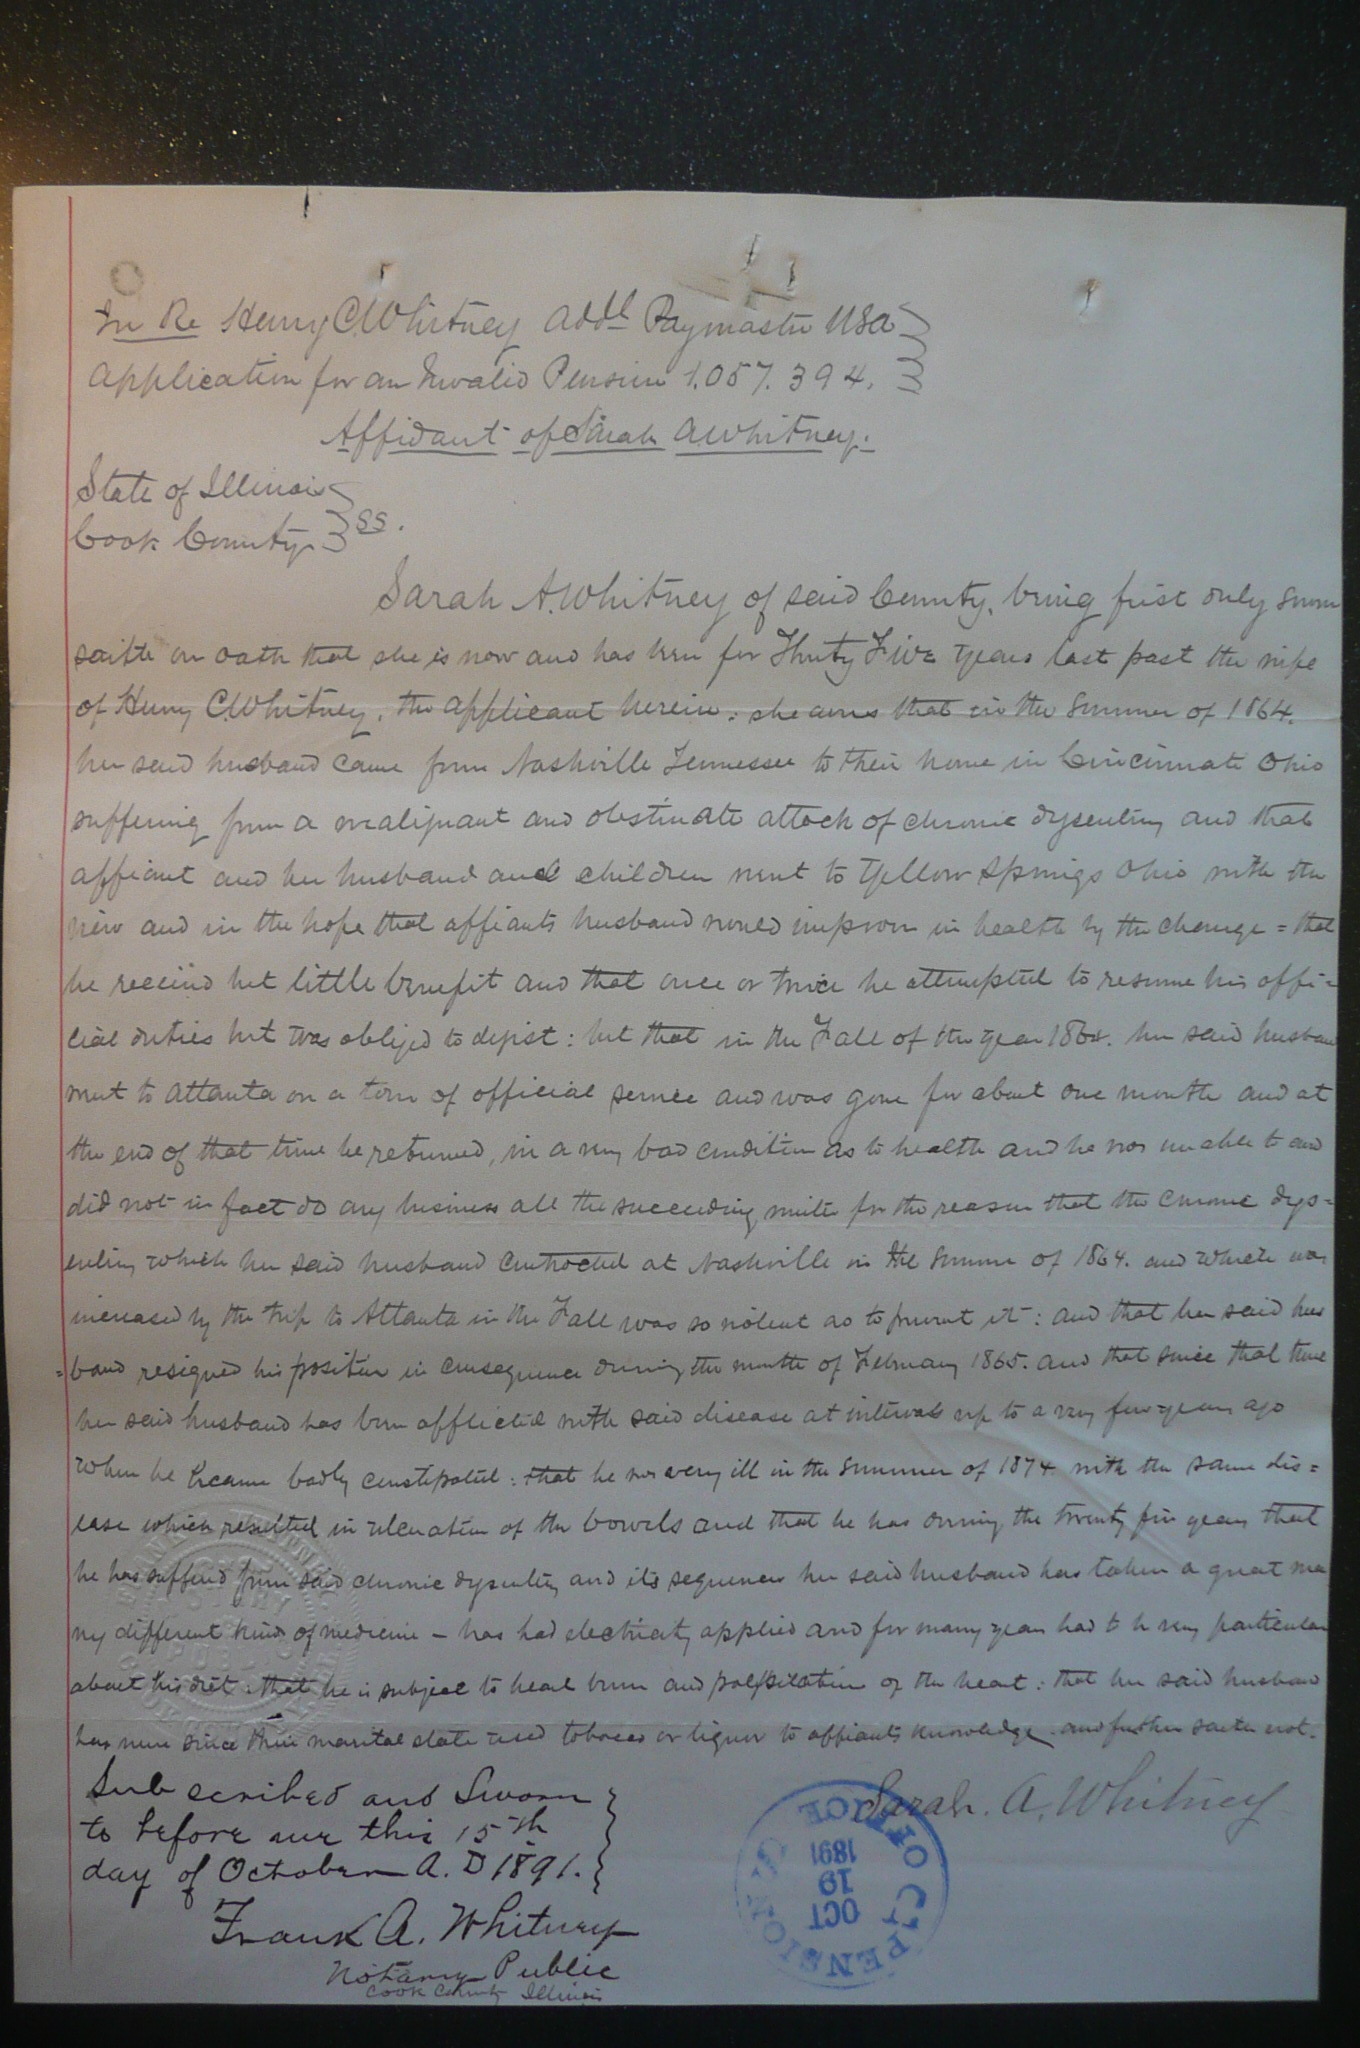 In Re Henry C. Whitney Addl Paymaster USA
Application for an Invalid Pension 1.057.394.
Affidavit of Sarah A Whitney.
State of Illinois
Cook County } SS.
Sarah A. Whitney of said County, being first duly sworn
saith on oath that she is now and has been for Thirty Five years last past the wife
of Henry C. Whitney, the applicant herein: she avers that in the Summer of 1864.
her said husband came from Nashville Tennessee to their home in Cincinnati Ohio
suffering from a malignant and obstinate attack of chronic dysentery and that
affiant and her husband and children went to Yellow Springs Ohio with the
view and in the hope that affiants husband would improve in health by the change = that
he received but little benefit and that once or twice he attempted to resume his offi-
cial duties but was obliged to desist: but that in the Fall of the year 1864. her said husband
went to Atlanta on a tour of official service and was gone for about one month and at
the end of that time he returned, in a very bad condition as to health and he was unable to and
did not in fact do any business all the succeeding winter for the reason that the chronic dys=
entery which her said husband contracted at Nashville in the Summer of 1864. and which was
increased by the trip to Atlanta in the Fall was so violent as to prevent it: and that her said hus
=band resigned his position in consequence during the month of February 1865. and that since that time
her said husband has been afflicted with said disease at intervals up to a very few years ago
when he became badly constipated: that he was very ill in the summer of 1874 with the same dis=
ease which resulted in ulceration of the bowels and that he has during the twenty five years that
he has suffered from said chronic dysentery and its sequences her said husband has taken a great ma
ny different kinds of medicine – has had electricity applied and for many years had to be very particular
about his diet: that he is subject to heart burn and palpitation of the heart: that her said husband
has never since their marital state used tobacco or liquor to affiants knowledge and further saith not.
Sarah. A. Whitney
Subscribed and Sworn
to before me this 15th
day of October A.D 1891.
Frank A. Whitney
Notary Public
Cook County Illinois
PENSION OFFICE
OCT
19
1891